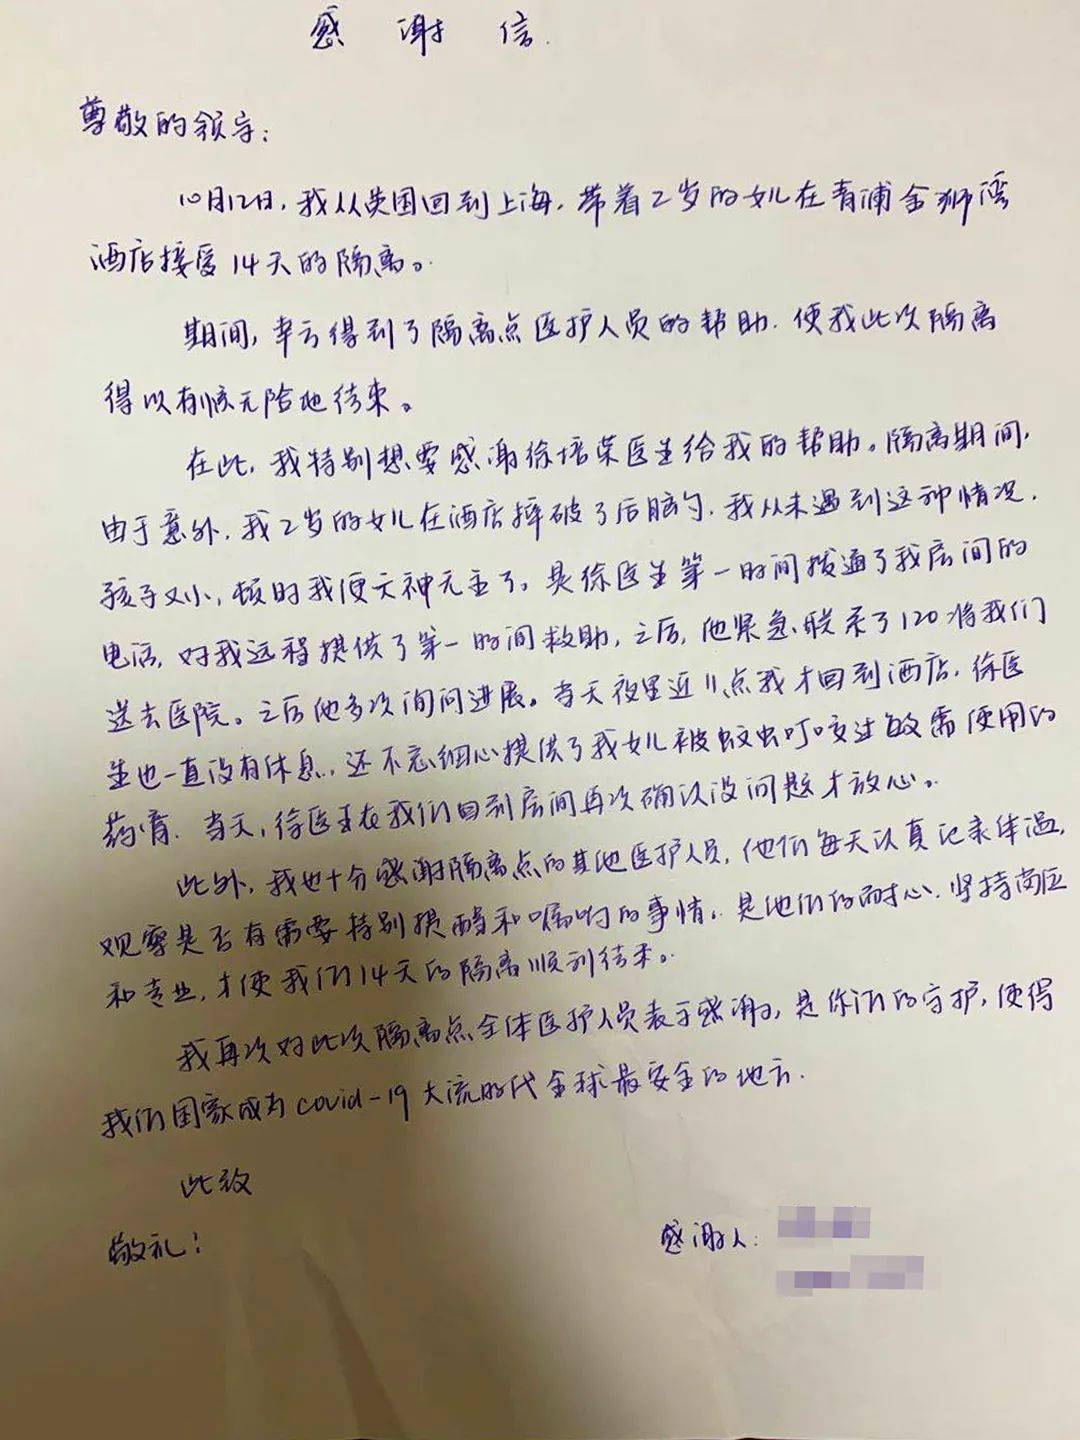 感谢信.
尊敬的领导:
10月12日,我从英国回到上海,带着2岁的女儿在青浦金狮湾
酒店接受14天的隔离。
期间,幸云得到了隔离点医护人员的帮助.使我此次隔离
得以有惊无险地结束。
在此,我特别想要感谢徐培荣医生给我的帮助。隔离期间,
由于意外,我2岁的女儿在酒店摔破了后脑勺.我从未遇到这种情况.
孩子又小,顿时我便六神无主了。是徐医生第一时间拨通了我房间的
电话,对我远程提供了第一时间救助,之后,他紧急联系了120将我们
送去医院。之后他多次询问进展。当天夜里近11点我才回到酒店,徐医
生也一直没有休息,还不忘细心提供了我女儿被蚊虫叮咬过敏需使用的
药膏.当天,徐医生在我们回到房间再次确认没问题才放心。
此外,我也十分感谢隔离点的其他医护人员,他们每天认真记录体温,
观察是否有需要特别提醒和嘱咐的事情。是他们的耐心.坚持岗位
和专业,才使我们14天的隔离顺利结束。
我再次对此次隔离点全体医护人员表示感谢,是你们的守护,使得
我们国家成为covid-19大流时代全球最安全的地方.
此致
敬礼!
感谢人: